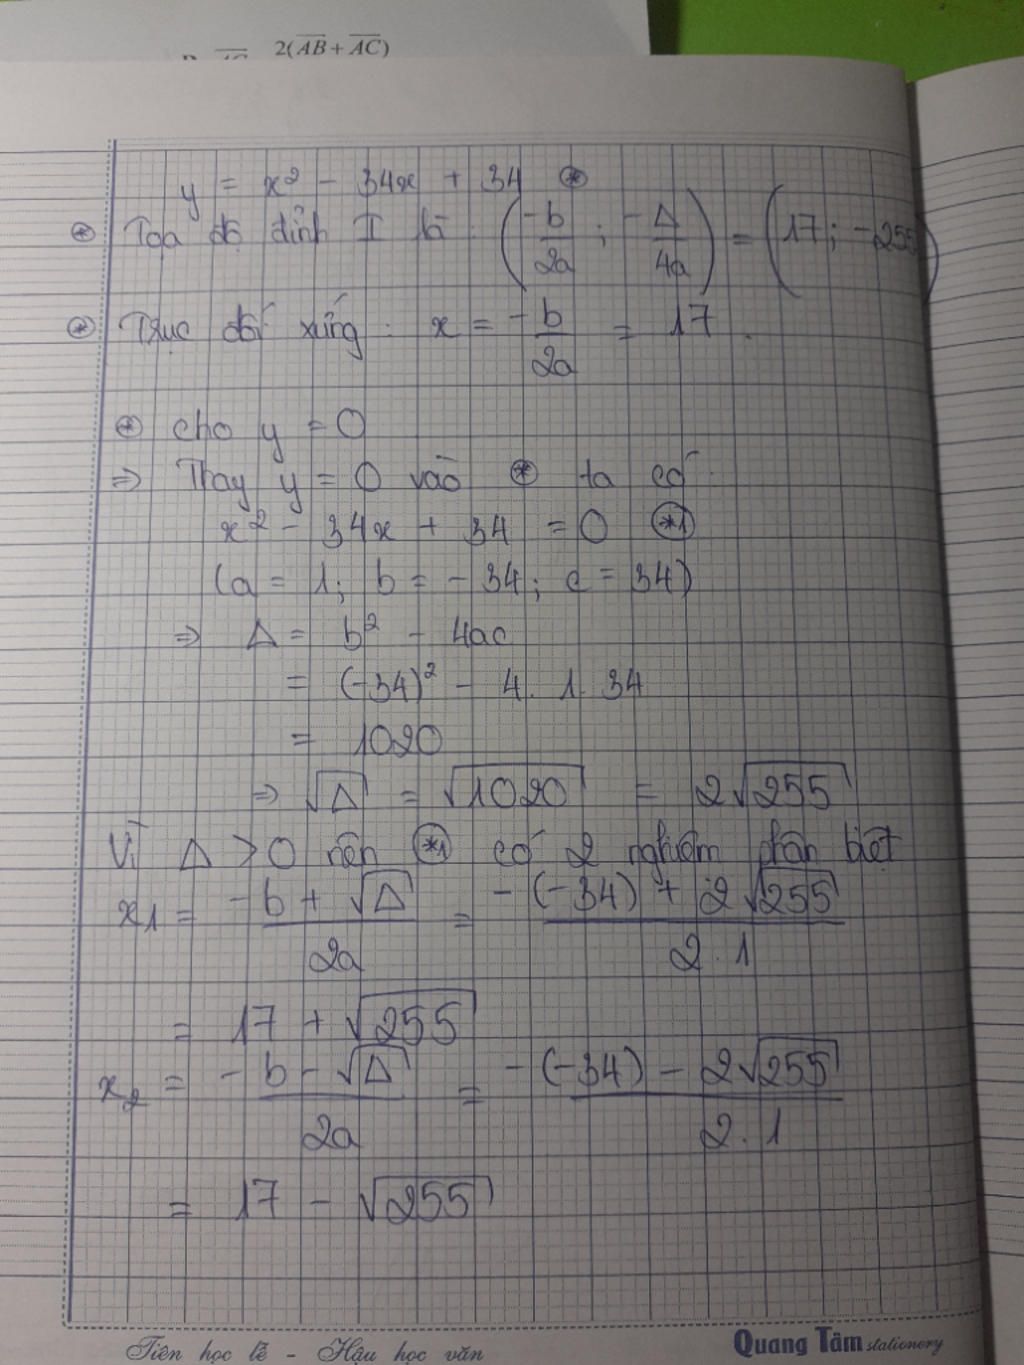 2(AB + AC)
y = x² - 34x + 34 ⊛
⊛ Tọa độ đỉnh I là : (-b/2a ; -Δ/4a) = (17 ; -255)
⊛ Trục đối xứng : x = -b/2a = 17 .
⊛ cho y = 0
⇒ Thay y = 0 vào ⊛ ta có
x² - 34x + 34 = 0 (*1)
(a = 1; b = -34; c = 34)
⇒ Δ = b² - 4ac
= (-34)² - 4. 1. 34
= 1020
⇒ √Δ = √1020 = 2√255
Vì Δ > 0 nên (*1) có 2 nghiệm phân biệt
x1 = (-b + √Δ)/2a = (-(-34) + 2√255)/2.1
= 17 + √255
x2 = (-b - √Δ)/2a = (-(-34) - 2√255)/2.1
= 17 - √255
Tiên học lễ - Hậu học văn
Quang Tâm stationery